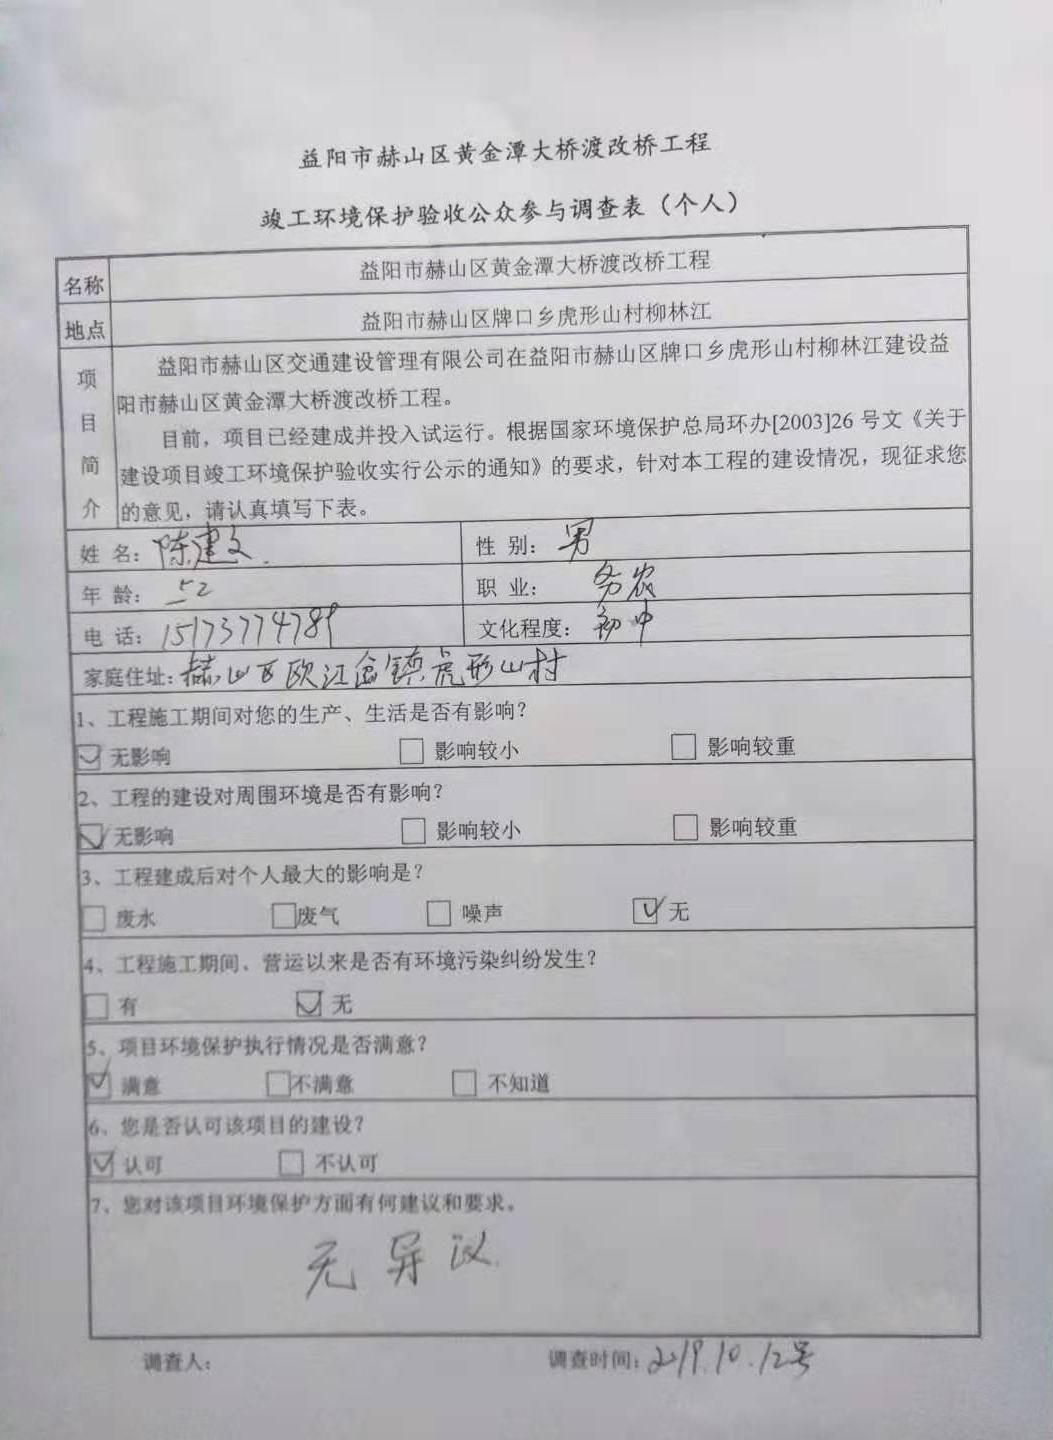 益阳市赫山区黄金潭大桥渡改桥工程
竣工环境保护验收公众参与调查表（个人）
名称 益阳市赫山区黄金潭大桥渡改桥工程
地点 益阳市赫山区牌口乡虎形山村柳林江
项目简介
益阳市赫山区交通建设管理有限公司在益阳市赫山区牌口乡虎形山村柳林江建设益
阳市赫山区黄金潭大桥渡改桥工程。
目前，项目已经建成并投入试运行。根据国家环境保护总局环办[2003]26 号文《关于
建设项目竣工环境保护验收实行公示的通知》的要求，针对本工程的建设情况，现征求您
的意见，请认真填写下表。
姓 名：陈建文 性 别：男
年 龄：52 职 业：务农
电 话：15173774789 文化程度：初中
家庭住址：赫山区欧江岔镇虎形山村
1、工程施工期间对您的生产、生活是否有影响？
☑ 无影响 □ 影响较小 □ 影响较重
2、工程的建设对周围环境是否有影响？
☑ 无影响 □ 影响较小 □ 影响较重
3、工程建成后对个人最大的影响是？
□ 废水 □ 废气 □ 噪声 ☑ 无
4、工程施工期间、营运以来是否有环境污染纠纷发生？
□ 有 ☑ 无
5、项目环境保护执行情况是否满意？
☑ 满意 □ 不满意 □ 不知道
6、您是否认可该项目的建设？
☑ 认可 □ 不认可
7、您对该项目环境保护方面有何建议和要求。
无异议
调查人： 调查时间：2019.10.12号